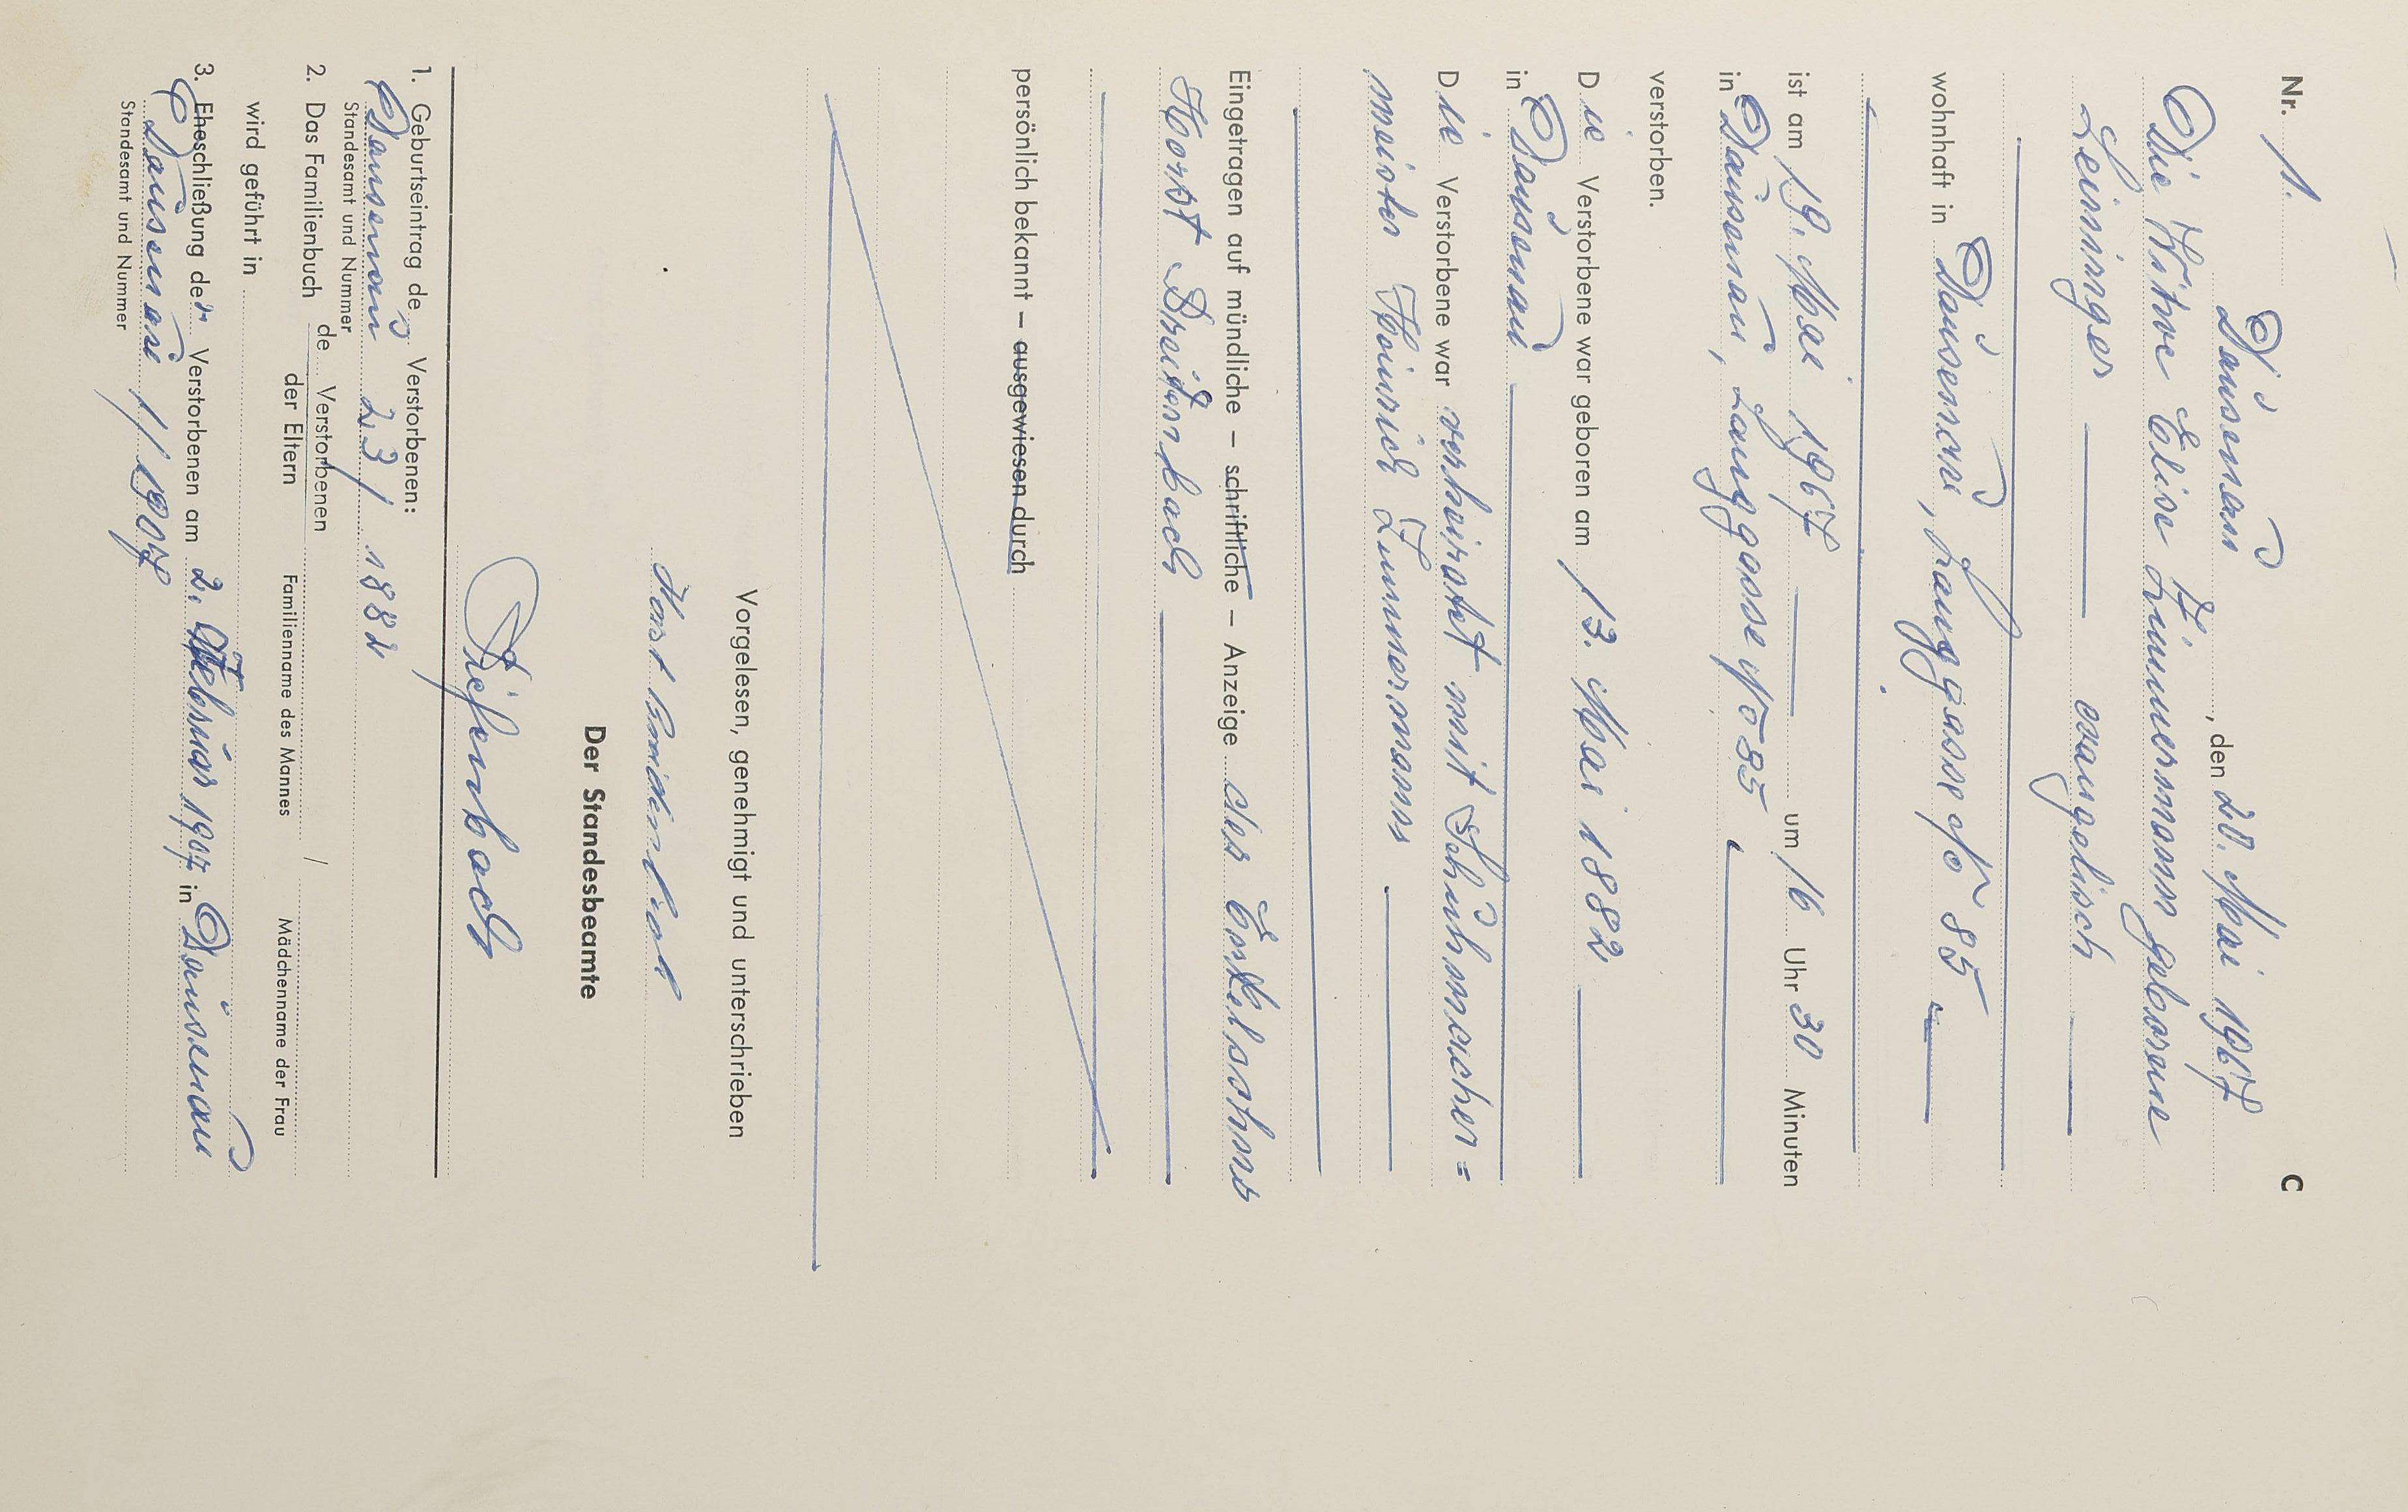 Nr. 1. C
Dausenau, den 20. Mai 1967
Die Witwe Elise Zimmermann geborene
Leininger — evangelisch
wohnhaft in Dausenau, Langgasse No 85
ist am 19. Mai 1967 um 16 Uhr 30 Minuten
in Dausenau, Langgasse No 85
verstorben.
Die Verstorbene war geboren am 13. Mai 1882
in Dausenau
Die Verstorbene war verheiratet mit Schuhmacher=
meister Heinrich Zimmermann
Eingetragen auf mündliche – schriftliche – Anzeige des Enkelsohns
Horst Breitenbach
persönlich bekannt – ausgewiesen durch
Vorgelesen, genehmigt und unterschrieben
Horst Breidenbach
Der Standesbeamte
Diefenbach
1. Geburtseintrag de Verstorbenen:
Dausenau 23/1882
Standesamt und Nummer
2. Das Familienbuch de Verstorbenen
der Eltern Familienname des Mannes / Mädchenname der Frau
wird geführt in
3. Eheschließung der Verstorbenen am 2. Februar 1907 in Dausenau
Dausenau 1/1907
Standesamt und Nummer